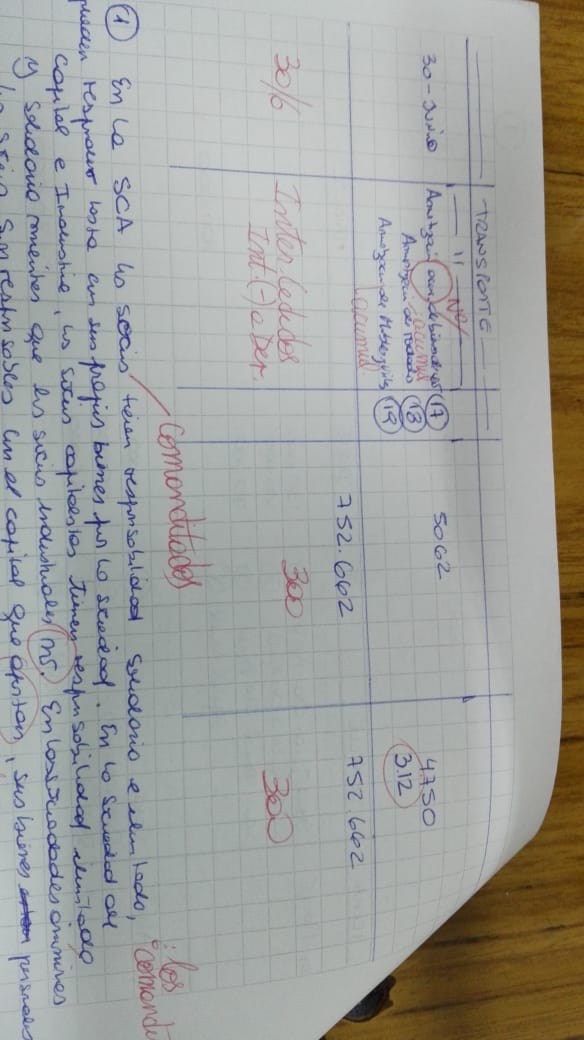 TRANSPORTE
" NO
30-Junio Amortización acum. de bienes de uso 17 5062
acumul.
Amortización de rodados 18 4750
Amortización de Muebles y útiles 19 312
acumul.
752.662 752.662
30/6 Inter. Cedidos 300
Int. (-) a Dev. 300
comanditados
: los
comandi
1 En la SCA los socios tienen responsabilidad solidaria e ilimitada,
pueden responder hasta con sus propios bienes por la sociedad. En la sociedad de
Capital e Industria, los socios capitalistas tienen responsabilidad ilimitada
y solidaria mientras que los socios industriales no. En las sociedades anónimas
los socios son responsables con el capital que aportan, sus bienes personales